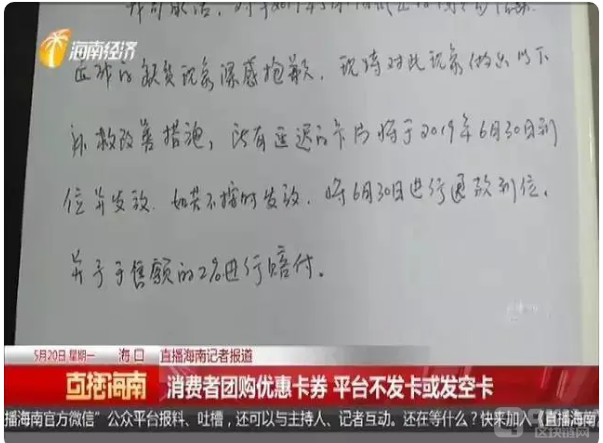 海南经济
区域的缺货现象深感抱歉，现特对此现象做出以下
补救改善措施，所有延迟的卡片将于2019年6月30日到
位并发放，如若不按时发放，将6月30日进行退款到位。
并予于售额的2%进行赔付。
5月20日 星期一 海口 直播海南记者报道
直播海南
消费者团购优惠卡券 平台不发卡或发空卡
播海南官方微信"公众平台报料、吐槽，还可以与主持人、记者互动。还在等什么？快来加入《直播海南
区块链网